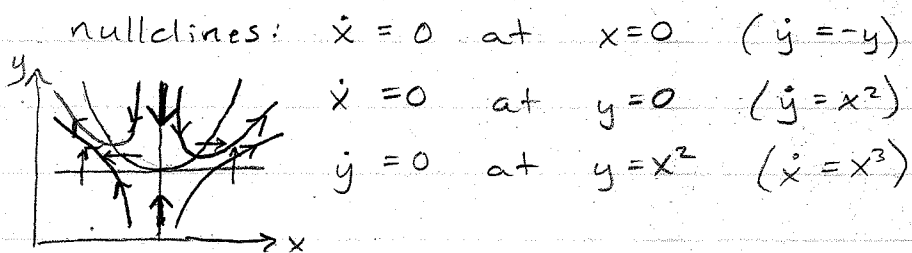 nullclines: ẋ = 0 at x=0 (ẏ = -y)
y
ẋ = 0 at y=0 (ẏ = x²)
ẏ = 0 at y=x² (ẋ = x³)
x